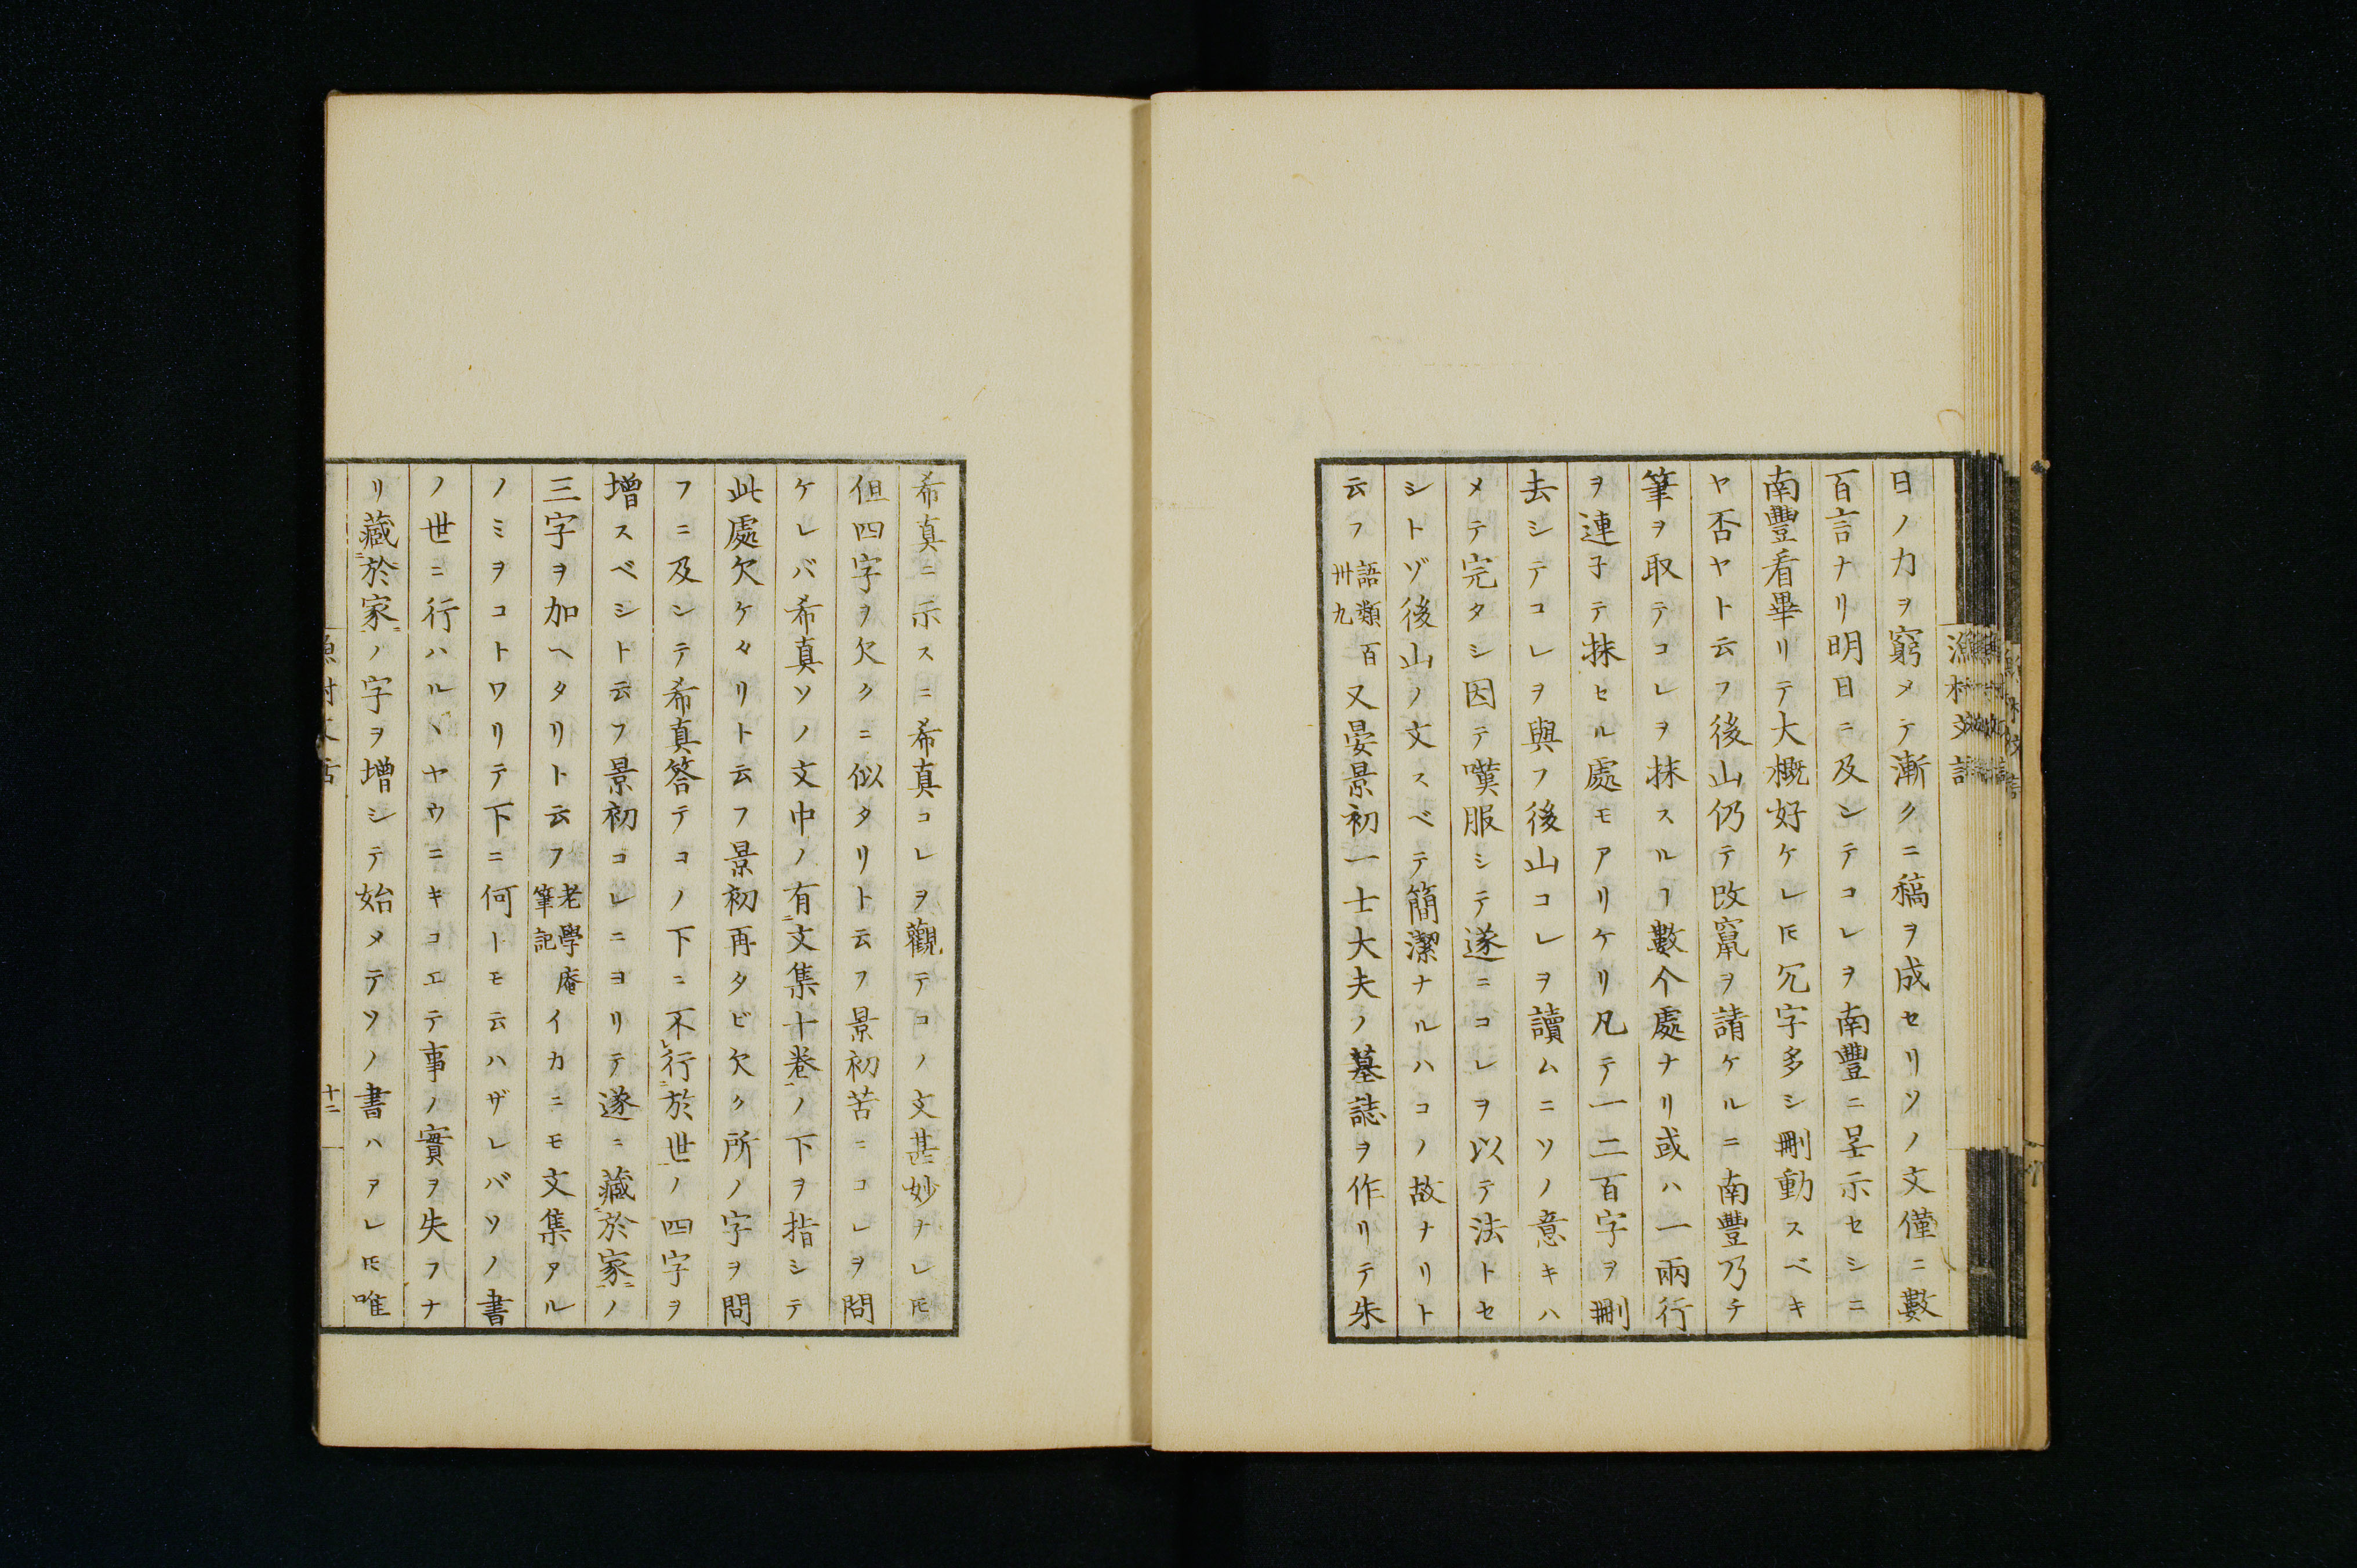 漁村文話
日ノ力ヲ窮メテ漸クニ稿ヲ成セリソノ文僅ニ數
百言ナリ明日ニ及シテコレヲ南豐ニ呈示セシニ
南豐看畢リテ大概好ケレ𪜈冗字多シ刪動スベキ
ヤ否ヤト云フ後山仍テ改竄ヲ請ケルニ南豐乃チ
筆ヲ取テコレヲ抹スルヿ數个處ナリ或ハ一兩行
ヲ連子テ抹セル處モアリケリ凡テ一二百字ヲ刪
去シテコレヲ與フ後山コレヲ讀ムニソノ意キハ
メテ完タシ因テ嘆服シテ遂ニコレヲ以テ法トセ
シトゾ後山ノ文スベテ簡潔ナルハコノ故ナリト
云フ語類百卅九又晏景初一士大夫ノ墓誌ヲ作リテ朱
希真ニ示スニ希真コレヲ觀テコノ文甚妙ナレ𪜈
但四字ヲ欠クニ似タリト云フ景初苦ニコレヲ問
ケレバ希真ソノ文中ノ有文集十卷ノ下ヲ指シテ
此處欠ケタリト云フ景初再タビ欠ク所ノ字ヲ問
フニ及シテ希真答テコノ下ニ不行於世ノ四字ヲ
增スベシト云フ景初コレニヨリテ遂ニ藏於家ノ
三字ヲ加ヘタリト云フ老學庵筆記イカニモ文集アル
ノミヲコトワリテ下ニ何トモ云ハザレバソノ書
ノ世ニ行ハルヽヤウニキコエテ事ノ實ヲ失フナ
リ藏於家ノ字ヲ增シテ始メテソノ書ハアレ𪜈唯
十二